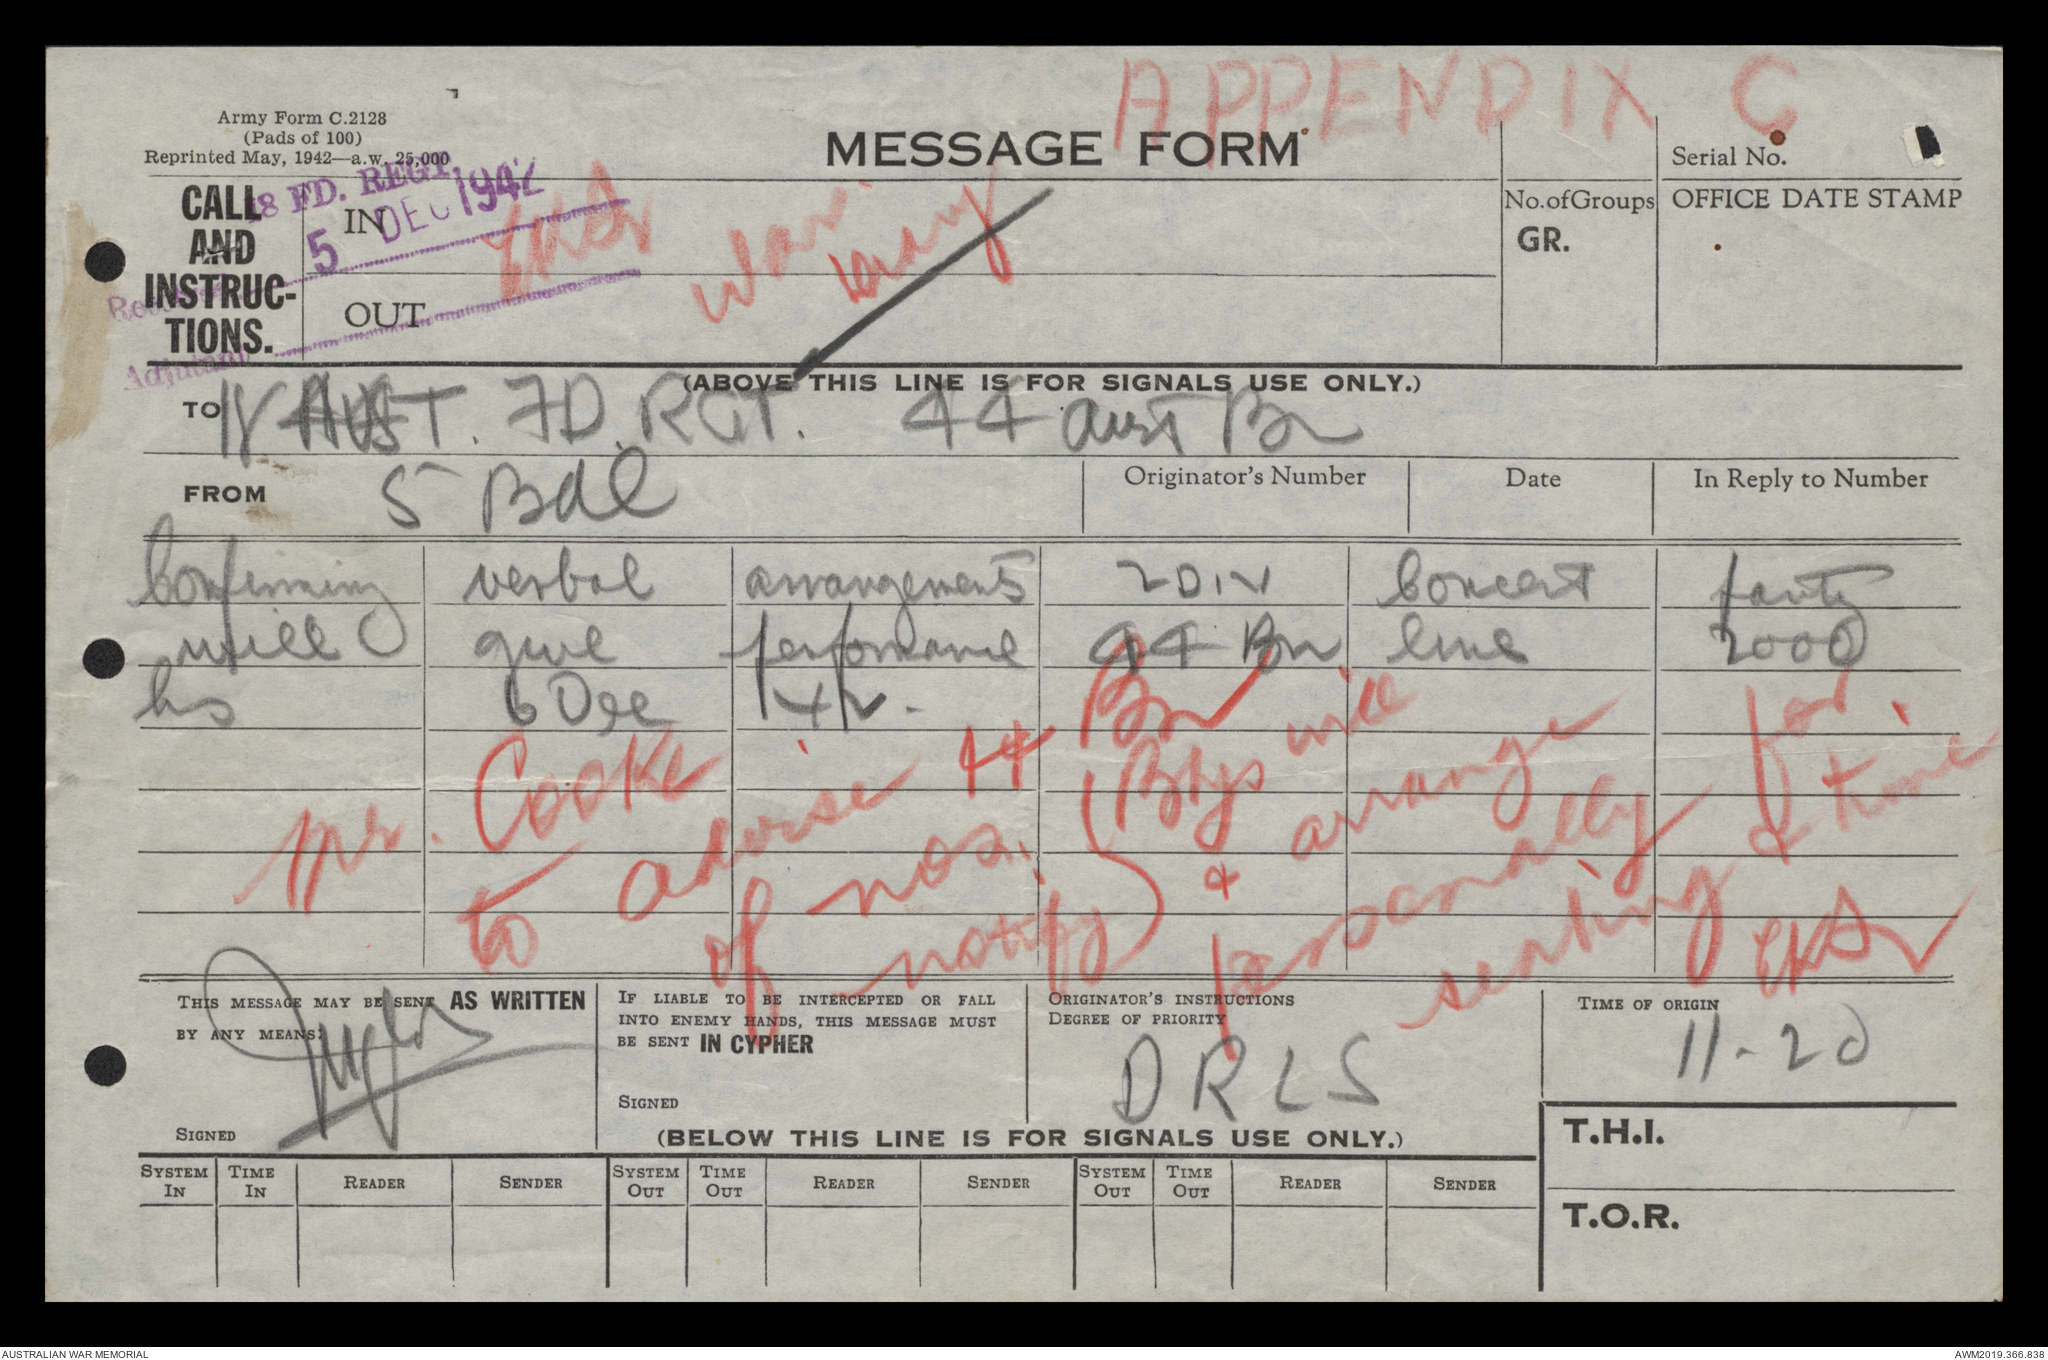 APPENDIX C
Army Form C.2128
(Pads of 100)
Reprinted May, 1942—a.w. 25,000
MESSAGE FORM
Serial No.
CALL
AND
INSTRUC-
TIONS.
IN
OUT
18 FD. REGT.
5 DEC 1942
Adjutant
War
Diary
No. of Groups
GR.
OFFICE DATE STAMP
(ABOVE THIS LINE IS FOR SIGNALS USE ONLY.)
TO 18 AUST. FD. RGT. 44 Aust Bn
FROM 5 Bde
Originator's Number
Date
In Reply to Number
Confirming verbal arrangements 2DIV Concert party
will give performance 44 Bn lines 2000
hs 6 Dec 42.
Mr. Cooke
to advise 44 Bn
of nos.
notify Btys will
& arrange
personally for
seating & time.
EKS
THIS MESSAGE MAY BE SENT AS WRITTEN
BY ANY MEANS:
SIGNED
IF LIABLE TO BE INTERCEPTED OR FALL
INTO ENEMY HANDS, THIS MESSAGE MUST
BE SENT IN CYPHER
SIGNED
ORIGINATOR'S INSTRUCTIONS
DEGREE OF PRIORITY
DRLS
TIME OF ORIGIN
11-20
T.H.I.
T.O.R.
(BELOW THIS LINE IS FOR SIGNALS USE ONLY.)
SYSTEM IN TIME IN READER SENDER SYSTEM OUT TIME OUT READER SENDER SYSTEM OUT TIME OUT READER SENDER
AUSTRALIAN WAR MEMORIAL
AWM2019.366.838